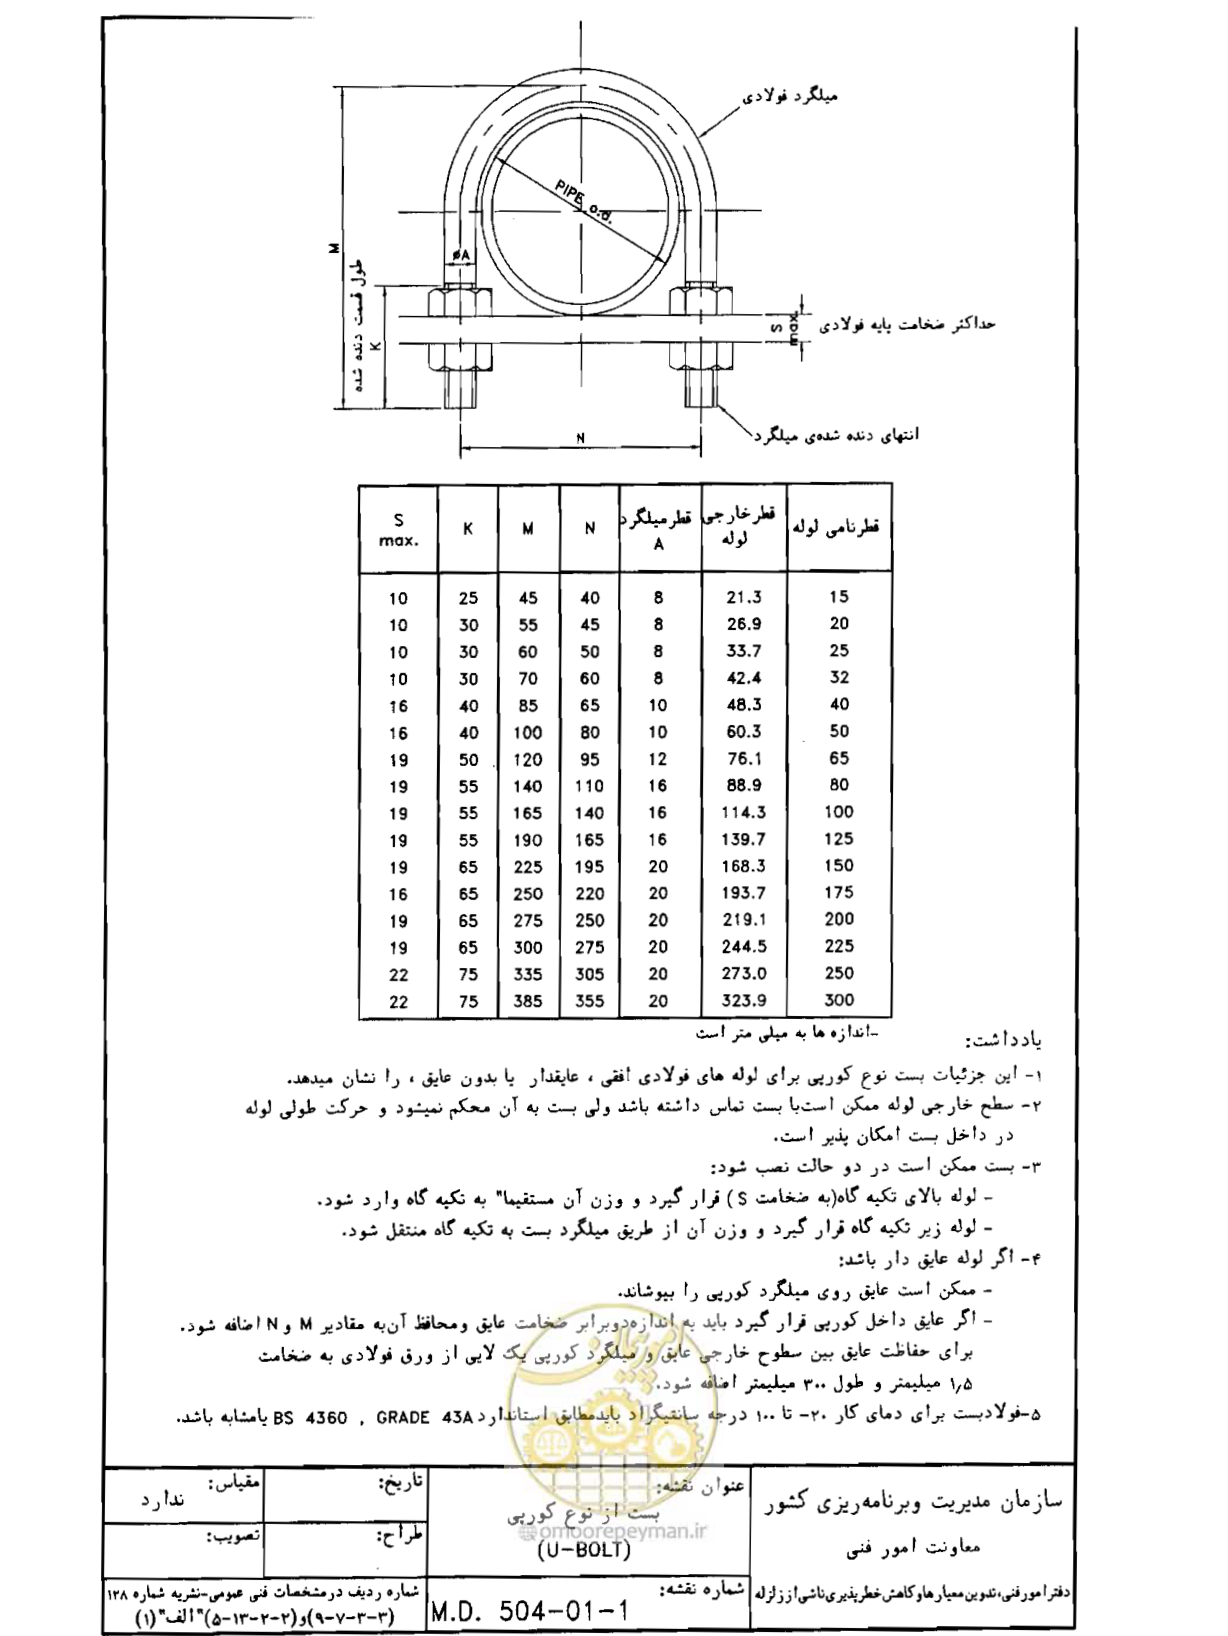 میلگرد فولادی
PIPE o.d.
M
øA
طول قسمت دنده شده
K
S max.
حداکثر ضخامت پایه فولادی
N
انتهای دنده شده‌ی میلگرد
قطر نامی لوله | قطر خارجی لوله | قطر میلگرد A | N | M | K | S max.
15 21.3 8 40 45 25 10
20 26.9 8 45 55 30 10
25 33.7 8 50 60 30 10
32 42.4 8 60 70 30 10
40 48.3 10 65 85 40 16
50 60.3 10 80 100 40 16
65 76.1 12 95 120 50 19
80 88.9 16 110 140 55 19
100 114.3 16 140 165 55 19
125 139.7 16 165 190 55 19
150 168.3 20 195 225 65 19
175 193.7 20 220 250 65 16
200 219.1 20 250 275 65 19
225 244.5 20 275 300 65 19
250 273.0 20 305 335 75 22
300 323.9 20 355 385 75 22
-اندازه ها به میلی متر است
یادداشت:
۱- این جزئیات بست نوع کورپی برای لوله های فولادی افقی ، عایقدار یا بدون عایق ، را نشان میدهد.
۲- سطح خارجی لوله ممکن است با بست تماس داشته باشد ولی بست به آن محکم نمیشود و حرکت طولی لوله
در داخل بست امکان پذیر است.
۳- بست ممکن است در دو حالت نصب شود:
- لوله بالای تکیه گاه(به ضخامت S) قرار گیرد و وزن آن مستقیما" به تکیه گاه وارد شود.
- لوله زیر تکیه گاه قرار گیرد و وزن آن از طریق میلگرد بست به تکیه گاه منتقل شود.
۴- اگر لوله عایق دار باشد:
- ممکن است عایق روی میلگرد کورپی را بپوشاند.
- اگر عایق داخل کورپی قرار گیرد باید به اندازه‌دوبرابر ضخامت عایق ومحافظ آن‌به مقادیر M و N اضافه شود.
برای حفاظت عایق بین سطوح خارجی عایق و میلگرد کورپی یک لایی از ورق فولادی به ضخامت
۱٫۵ میلیمتر و طول ۳۰۰ میلیمتر اضافه شود.
۵-فولادبست برای دمای کار ۲۰- تا ۱۰۰ درجه سانتیگراد بایدمطابق استاندارد BS 4360 , GRADE 43A یامشابه باشد.
امور پیمان
omoorepeyman.ir
سازمان مدیریت وبرنامه‌ریزی کشور
معاونت امور فنی
دفتر امور فنی،تدوین معیارها و کاهش خطرپذیری ناشی از زلزله
عنوان نقشه:
بست از نوع کورپی
(U-BOLT)
شماره نقشه:
M.D. 504-01-1
تاریخ:
مقیاس:
ندارد
طراح:
تصویب:
شماره ردیف در مشخصات فنی عمومی-نشریه شماره ۱۲۸
(۹-۷-۳-۳)و(۵-۱۳-۲-۲)"الف"(۱)